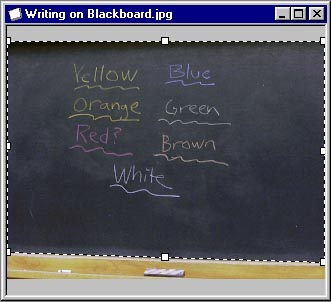 Writing on Blackboard.jpg
Yellow Blue
Orange Green
Red? Brown
White